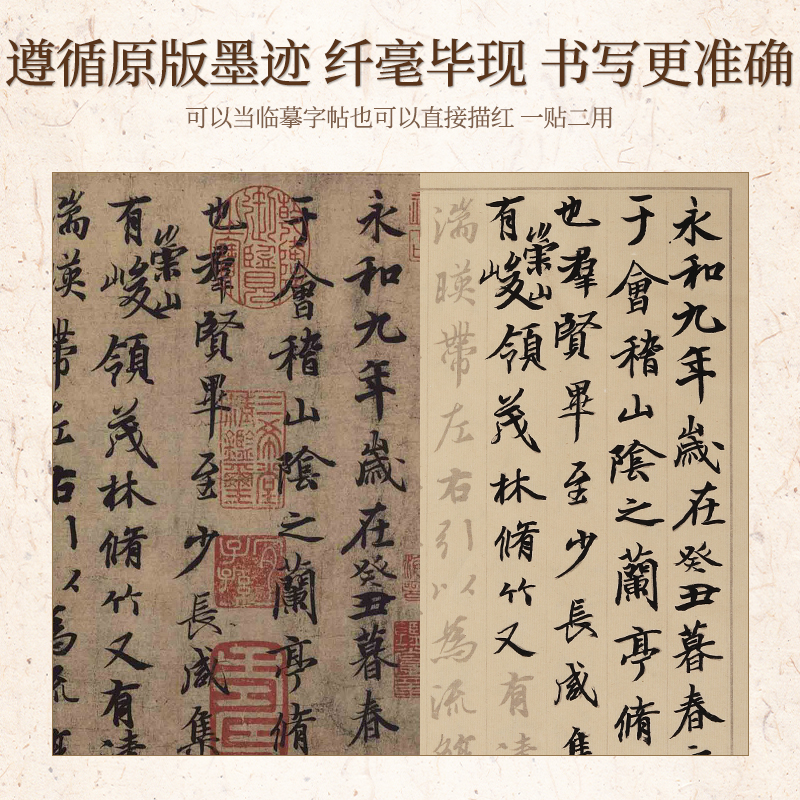 遵循原版墨迹 纤毫毕现 书写更准确
可以当临摹字帖也可以直接描红 一贴二用
永和九年歲在癸丑暮春
于會稽山陰之蘭亭脩
也羣賢畢至少長咸集
有崇山峻領茂林脩竹又有清
湍暎帶左右引以為流
永和九年歲在癸丑暮春
于會稽山陰之蘭亭脩
也羣賢畢至少長咸集
有崇山峻領茂林脩竹又有清
湍暎帶左右引以為流